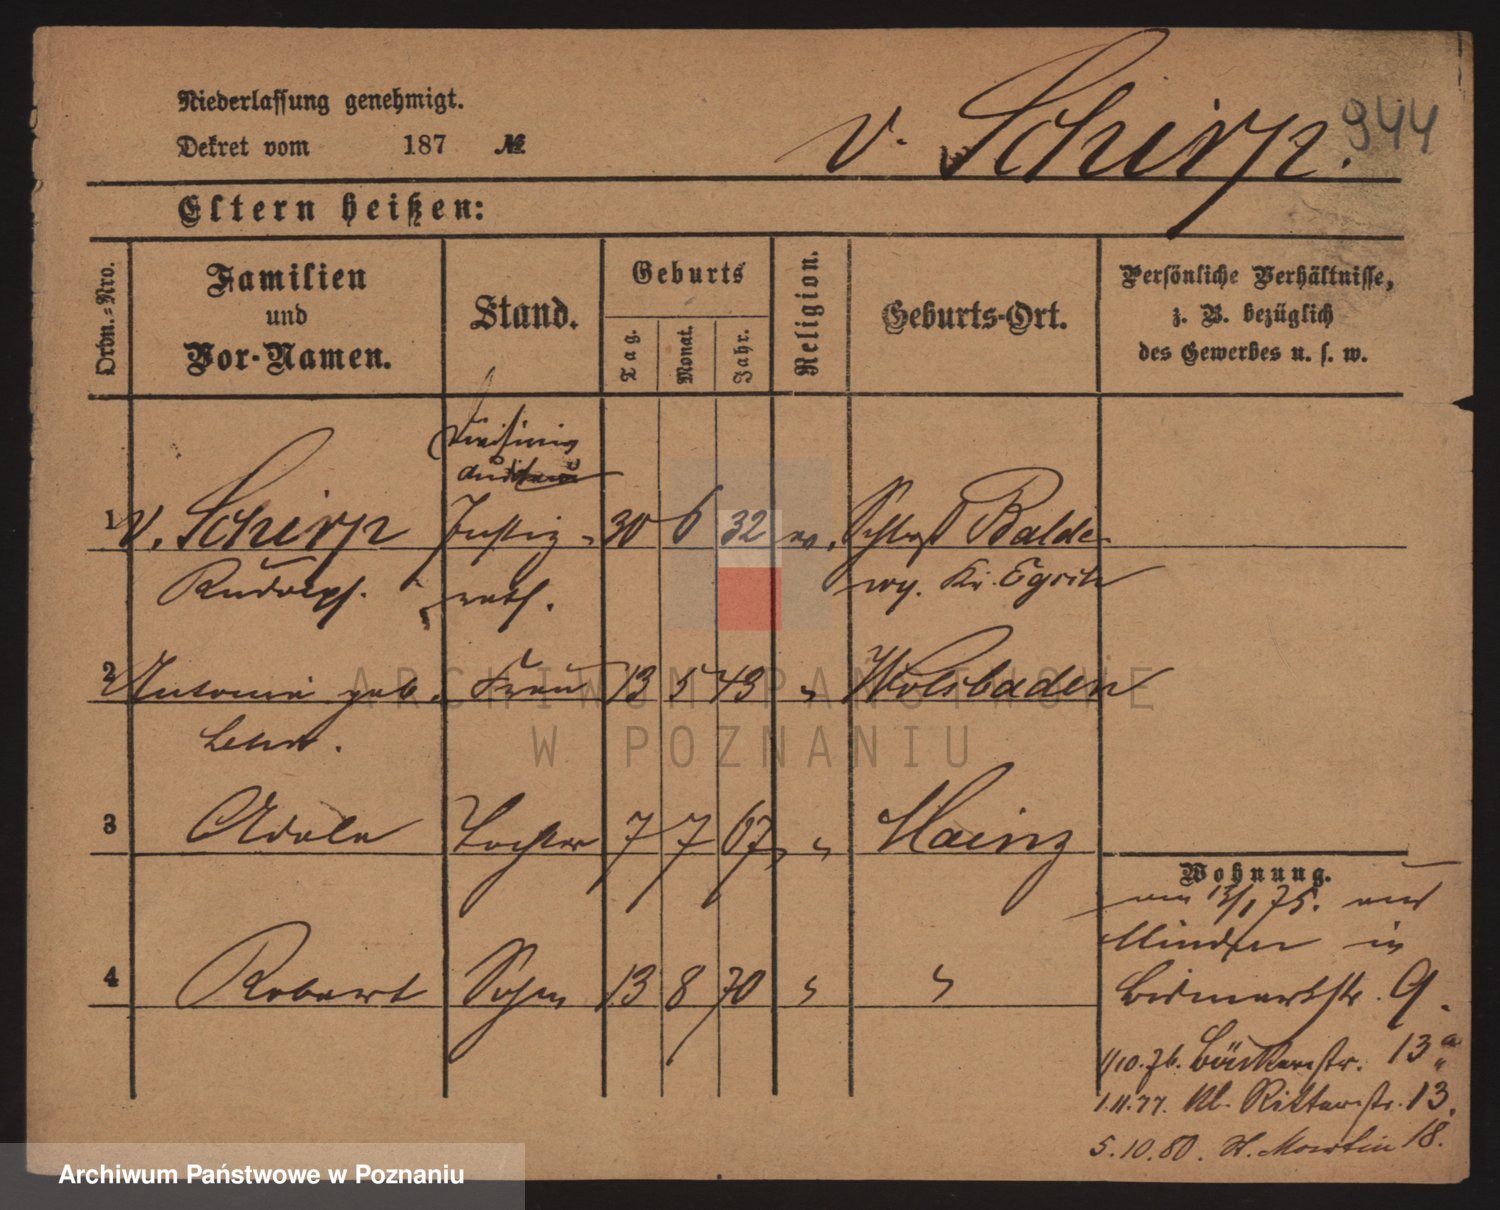 Niederlassung genehmigt.
Dekret vom 187 №
v. Schirp. 944
Eltern heißen:
Ordn.-Nro.
Familien
und
Vor-Namen.
Stand.
Geburts
Tag.
Monat.
Jahr.
Religion.
Geburts-Ort.
Persönliche Verhältnisse,
z. B. bezüglich
des Gewerbes u. s. w.
1 v. Schirp Justiz- 30 6 32 ev. Schloß Balde-
Rudolph. rath. ney. Kr.
2 Antonie geb. Frau 13 5 43 " Wolsbaden
3 Adele Tochter 7 7 67 " Mainz
4 Robert Sohn 13 8 70 " "
Wohnung.
am 13/1 75. aus
Minden in
Bismarkstr. 9.
1/10.76. Bäckerstr. 13a
1.11.77. Kl. Ritterstr. 13.
5.10.80. St. Martin 18.
ARCHIWUM PAŃSTWOWE
W POZNANIU
Archiwum Państwowe w Poznaniu